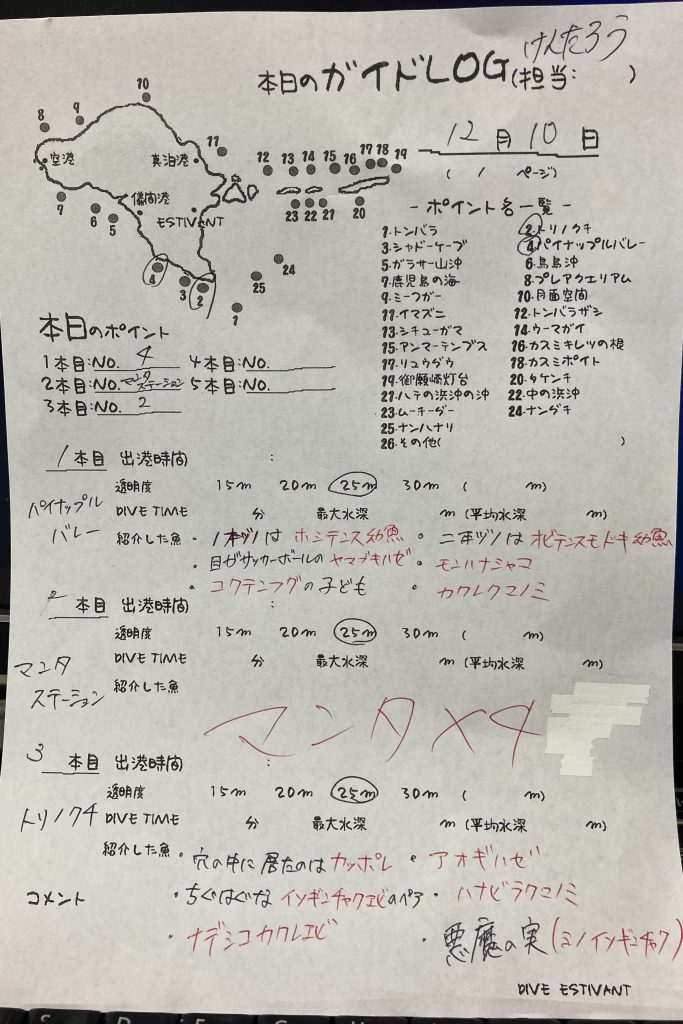 けんたろう
本日のガイドLOG(担当: )
12月10日
( / ページ)
10
9
8
11
12 13 14 15 16 17 18 19
空港
真泊港
儀間港
ESTIVANT
7 6 5
23 22 21 20
24
25
4 3 2
1
- ポイント名一覧 -
1.トンバラ 2.トリノクチ
3.シャドーケーブ 4.パイナップルバレー
5.ガラサー山沖 6.鳥島沖
7.鹿児島の海 8.プレアクエリアム
9.ミーフガー 10.月面空間
11.イマズニ 12.トンバラザシ
13.シチューガマ 14.ウーマガイ
15.アンマーテンブス 16.カスミキレツの根
17.リュウグウ 18.カスミポイト
19.御願崎灯台 20.タケンチ
21.ハテの浜沖の沖 22.中の浜沖
23.ムーチーグー 24.ナンダキ
25.ナンハナリ
26.その他( )
本日のポイント
1本目:NO. 4 4本目:NO.
2本目:NO. マンタステーション 5本目:NO.
3本目:NO. 2
1本目 出港時間 :
透明度 15m 20m 25m 30m ( m)
パイナップルバレー
DIVE TIME 分 最大水深 m (平均水深 m)
紹介した魚 ・1本ヅノは ホシテンス幼魚 ・二本ヅノは オビテンスモドキ幼魚
・目がサッカーボールの ヤマブキハゼ ・モンハナシャコ
・コクテンフグの子ども ・カクレクマノミ
2本目 出港時間 :
透明度 15m 20m 25m 30m ( m)
マンタステーション
DIVE TIME 分 最大水深 m (平均水深 m)
紹介した魚
マンタ×4
3本目 出港時間 :
透明度 15m 20m 25m 30m ( m)
トリノクチ
DIVE TIME 分 最大水深 m (平均水深 m)
紹介した魚 ・穴の中に居たのは カッポレ ・アオギハゼ
コメント ・ちぐはぐな イソギンチャクエビのペア ・ハナビラクマノミ
・ナデシコカクレエビ ・悪魔の実(ミノイソギンチャク)
DIVE ESTIVANT